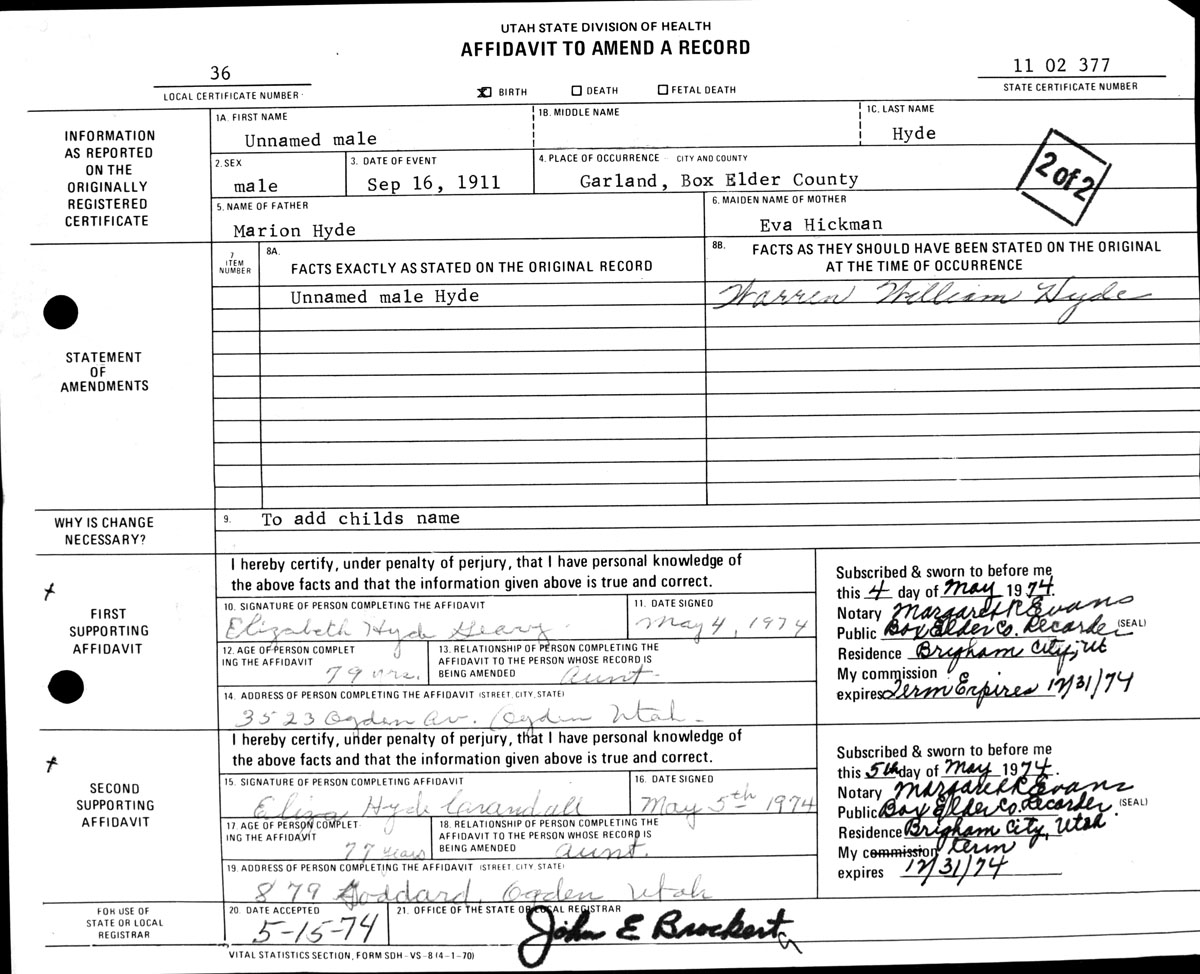 UTAH STATE DIVISION OF HEALTH
AFFIDAVIT TO AMEND A RECORD
36
LOCAL CERTIFICATE NUMBER
BIRTH DEATH FETAL DEATH
11 02 377
STATE CERTIFICATE NUMBER
INFORMATION
AS REPORTED
ON THE
ORIGINALLY
REGISTERED
CERTIFICATE
1A. FIRST NAME 1B. MIDDLE NAME 1C. LAST NAME
Unnamed male Hyde
2. SEX 3. DATE OF EVENT 4. PLACE OF OCCURRENCE - CITY AND COUNTY
male Sep 16, 1911 Garland, Box Elder County
2 of 2
5. NAME OF FATHER 6. MAIDEN NAME OF MOTHER
Marion Hyde Eva Hickman
STATEMENT
OF
AMENDMENTS
7
ITEM
NUMBER
8A.
FACTS EXACTLY AS STATED ON THE ORIGINAL RECORD
8B. FACTS AS THEY SHOULD HAVE BEEN STATED ON THE ORIGINAL
AT THE TIME OF OCCURRENCE
Unnamed male Hyde Warren William Hyde
WHY IS CHANGE
NECESSARY?
9. To add childs name
FIRST
SUPPORTING
AFFIDAVIT
I hereby certify, under penalty of perjury, that I have personal knowledge of
the above facts and that the information given above is true and correct.
10. SIGNATURE OF PERSON COMPLETING THE AFFIDAVIT 11. DATE SIGNED
Elizabeth Hyde Geary. May 4, 1974
12. AGE OF PERSON COMPLET
ING THE AFFIDAVIT
79 yrs.
13. RELATIONSHIP OF PERSON COMPLETING THE
AFFIDAVIT TO THE PERSON WHOSE RECORD IS
BEING AMENDED aunt.
14. ADDRESS OF PERSON COMPLETING THE AFFIDAVIT (STREET, CITY, STATE)
3523 Ogden Av. Ogden Utah
Subscribed & sworn to before me
this 4 day of May 1974.
Notary Margaret R Evans
Public Box Elder Co. Recorder (SEAL)
Residence Brigham City, Ut
My commission
expires Term Expires 12/31/74
SECOND
SUPPORTING
AFFIDAVIT
I hereby certify, under penalty of perjury, that I have personal knowledge of
the above facts and that the information given above is true and correct.
15. SIGNATURE OF PERSON COMPLETING AFFIDAVIT 16. DATE SIGNED
Eliza Hyde Crandall May 5th 1974
17. AGE OF PERSON COMPLET
ING THE AFFIDAVIT
77 years
18. RELATIONSHIP OF PERSON COMPLETING THE
AFFIDAVIT TO THE PERSON WHOSE RECORD IS
BEING AMENDED aunt.
19. ADDRESS OF PERSON COMPLETING THE AFFIDAVIT (STREET, CITY STATE)
879 Goddard, Ogden Utah
Subscribed & sworn to before me
this 5th day of May 1974.
Notary Margaret R Evans
Public Box Elder Co. Recorder (SEAL)
Residence Brigham City, Utah
My commission term
expires 12/31/74
FOR USE OF
STATE OR LOCAL
REGISTRAR
20. DATE ACCEPTED 21. OFFICE OF THE STATE OR LOCAL REGISTRAR
5-15-74 John E Brockert
VITAL STATISTICS SECTION, FORM SDH-VS-8 (4-1-70)